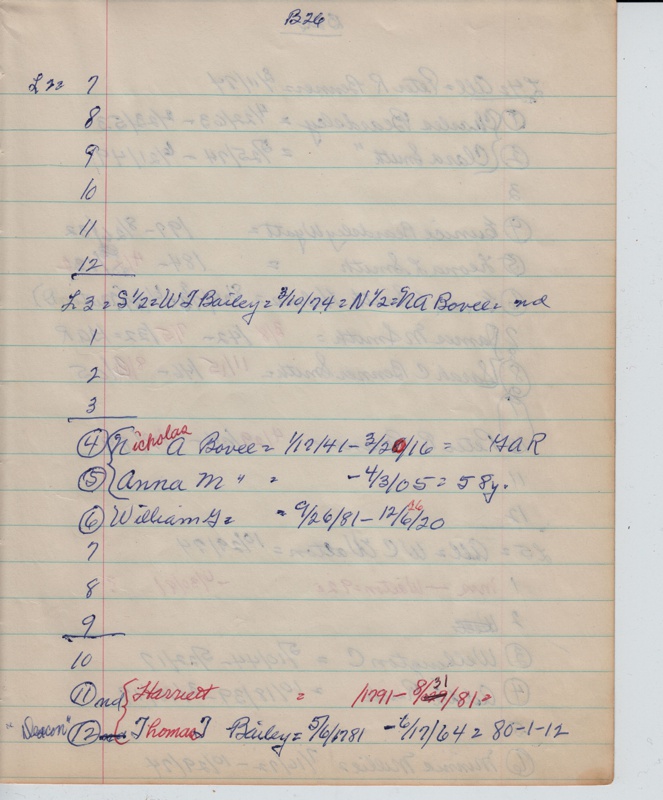 B26
L 2= 7
8
9
10
11
12
L 3 = S 1/2 = W T Bailey = 3/10/74 = N 1/2 = N A Bovee = nd
1
2
3
④ { Nicholas A Bovee = 1/17/41 - 3/20/16 = GAR
⑤ { Anna M " = - 4/3/05 = 58y.
⑥ William G = = 9/26/81 - 12/6/20
7
8
9
10
⑪ nd { Harriett = /1791 - 8/31/81 =
"Deacon" ⑫ { Thomas T Bailey = 5/6/1781 - 6/17/64 = 80-1-12